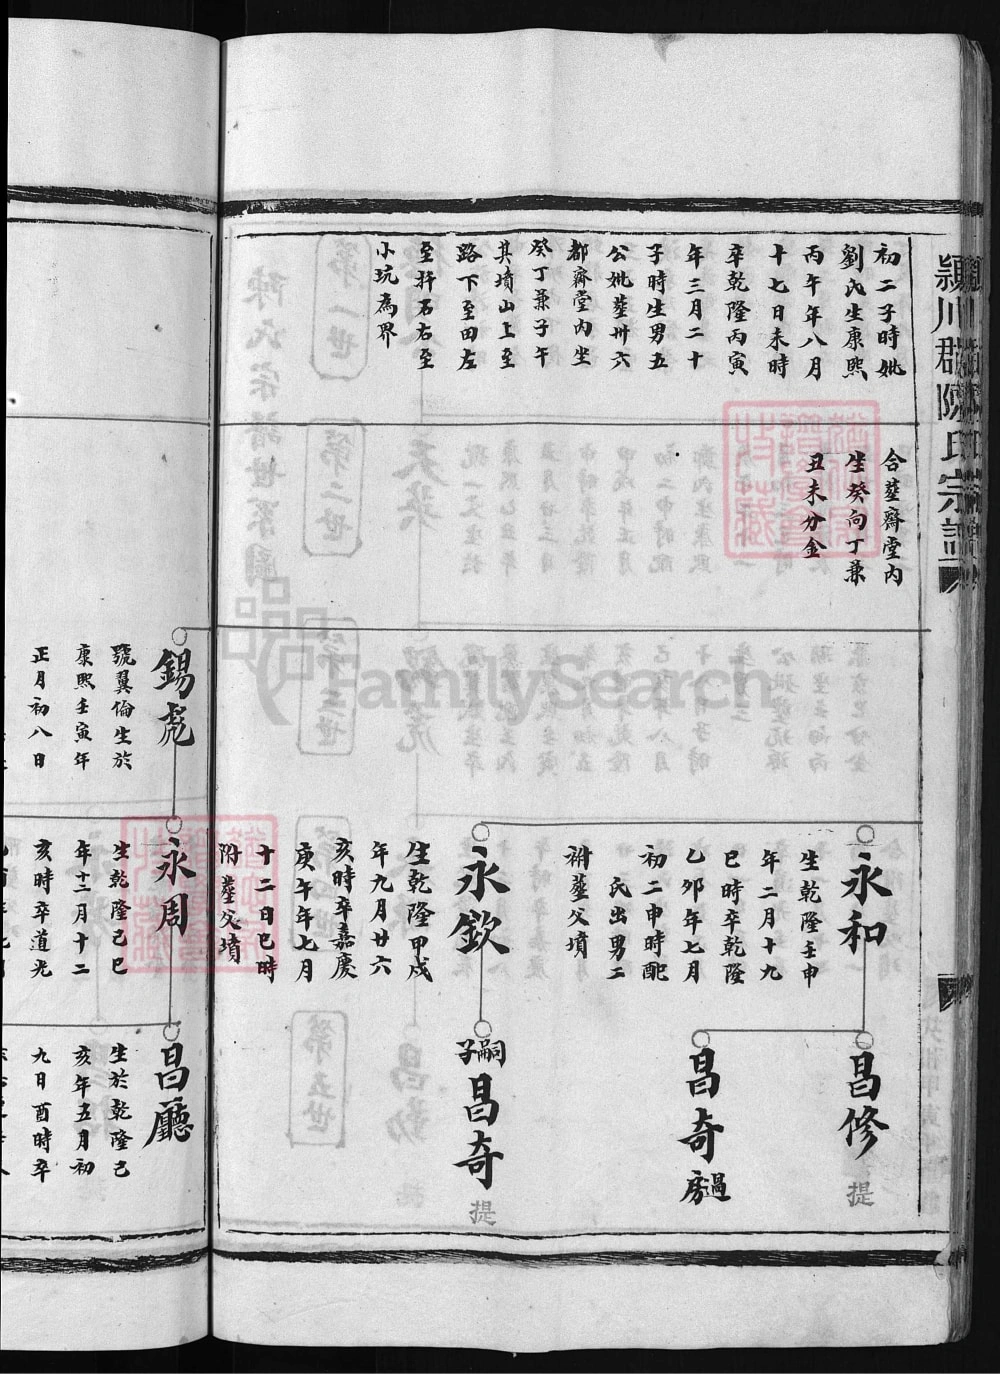 潁川郡陳氏宗譜
初二子時妣
劉氏生康熙
丙午年八月
十七日未時
卒乾隆丙寅
年三月二十
子時生男五
公妣塟卅六
都齋堂內坐
癸丁兼子午
其墳山上至
路下至田左
至幵石右至
小坑為界
合塟齋堂內
坐癸向丁兼
丑未分金
永和
生乾隆壬申
年二月十九
巳時卒乾隆
乙卯年七月
初二申時配
氏出男二
祔塟父墳
永欽
生乾隆甲戌
年九月廿六
亥時卒嘉慶
庚午年七月
十二日巳時
附塟父墳
昌修
提
昌奇
過房
嗣子
昌奇
提
錫彪
號翼倫生於
康熙壬寅年
正月初八日
永周
生乾隆己巳
年十二月十二
亥時卒道光
昌廳
生於乾隆己
亥年五月初
九日酉時卒
FamilySearch